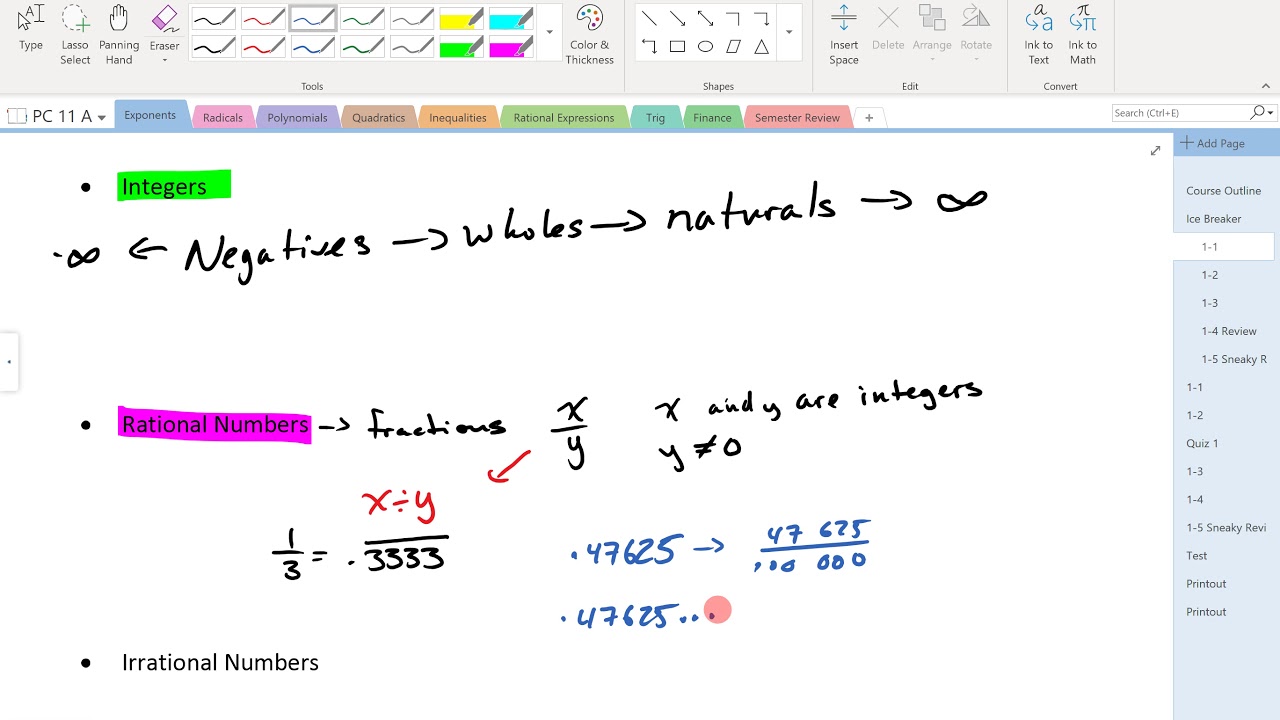 Type
Lasso Select
Panning Hand
Eraser
Color & Thickness
Insert Space
Delete
Arrange
Rotate
Ink to Text
Ink to Math
Tools
Shapes
Edit
Convert
PC 11 A
Exponents
Radicals
Polynomials
Quadratics
Inequalities
Rational Expressions
Trig
Finance
Semester Review
+
Search (Ctrl+E)
+ Add Page
Course Outline
Ice Breaker
1-1
1-2
1-3
1-4 Review
1-5 Sneaky R
1-1
1-2
Quiz 1
1-3
1-4
1-5 Sneaky Revi
Test
Printout
Printout
• Integers
-∞ ← Negatives → wholes → naturals → ∞
• Rational Numbers → fractions x/y x and y are integers
y ≠ 0
x ÷ y
1/3 = .3333
.47625 → 47 625/100 000
.47625...
• Irrational Numbers